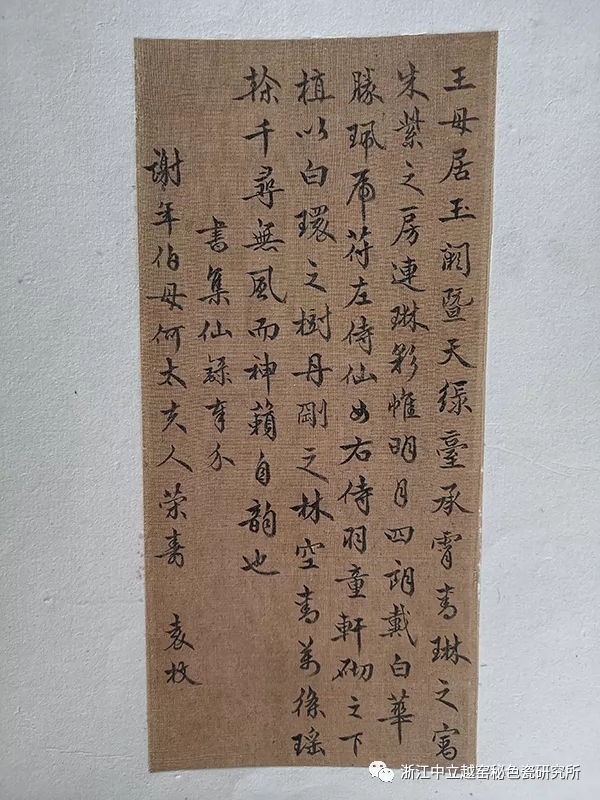 王母居玉阙暨天绿臺承霄青琳之宫
朱紫之房連琳彩帷明月四朗戴白華
勝珮虎符左侍仙女右侍羽童軒砌之下
植以白環之樹丹剛之林空青萬條瑶
榦千尋無風而神籟自韵也
書集仙録奉介
謝年伯母何太夫人荣壽
袁枚
浙江中立越窑秘色瓷研究所